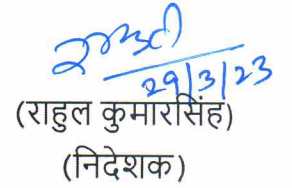 29/3/23
(राहुल कुमारसिंह)
(निदेशक)